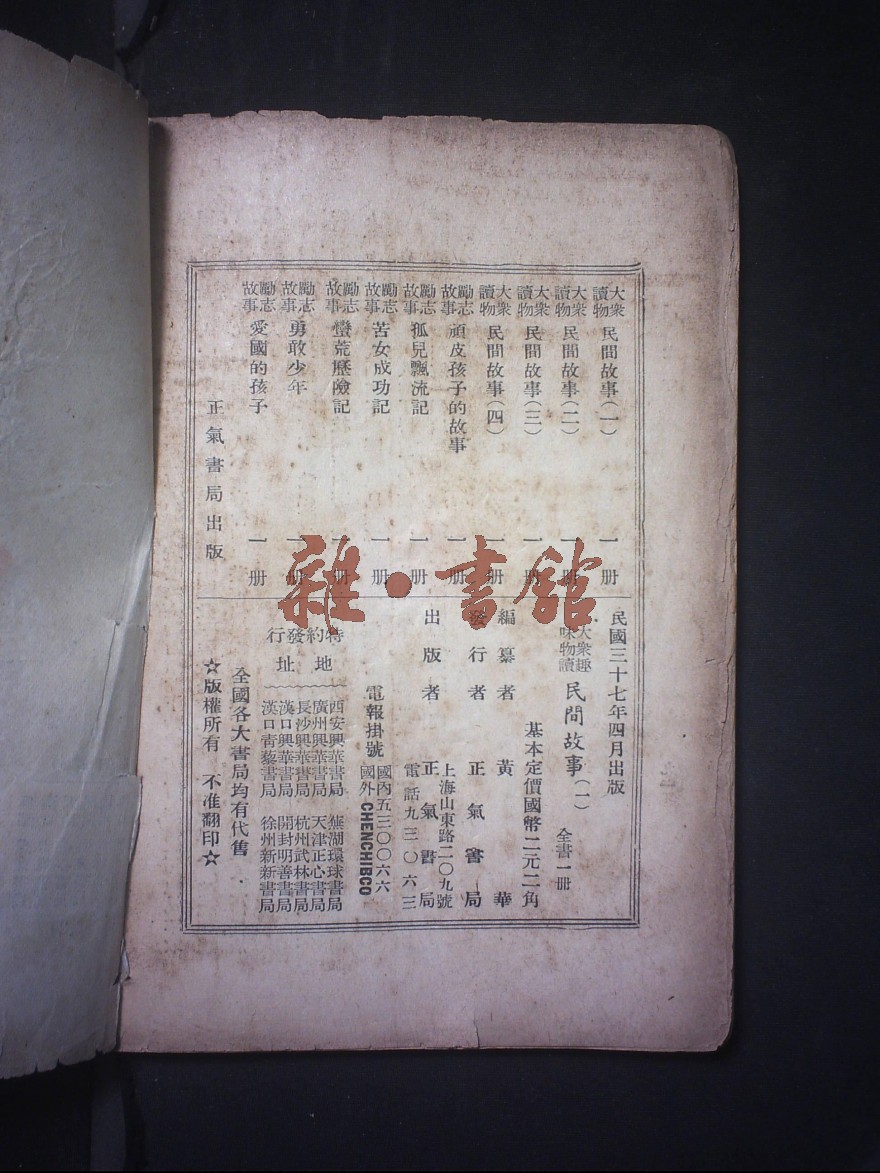 大衆讀物 民間故事(一) 一册
大衆讀物 民間故事(二) 一册
大衆讀物 民間故事(三) 一册
大衆讀物 民間故事(四) 一册
勵志故事 頑皮孩子的故事 一册
勵志故事 孤兒飄流記 一册
勵志故事 苦女成功記 一册
勵志故事 蠻荒歷險記 一册
勵志故事 勇敢少年 一册
勵志故事 愛國的孩子 一册
正氣書局出版
民國三十七年四月出版
大衆趣味物讀 民間故事(一) 全書一册
基本定價國幣二元二角
編纂者 黃華
發行者 正氣書局
出版者 正氣書局
上海山東路二〇九號
電話九三〇六三
電報掛號 國內五三〇〇六六
國外CHENCHIBCO
特約發行地址
西安興華書局 蕪湖環球書局
廣州興華書局 天津正心書局
長沙興華書局 杭州武林書局
漢口興華書局 開封明善書局
漢口青藜書局 徐州新新書局
全國各大書局均有代售
☆版權所有 不准翻印☆
雜·書館